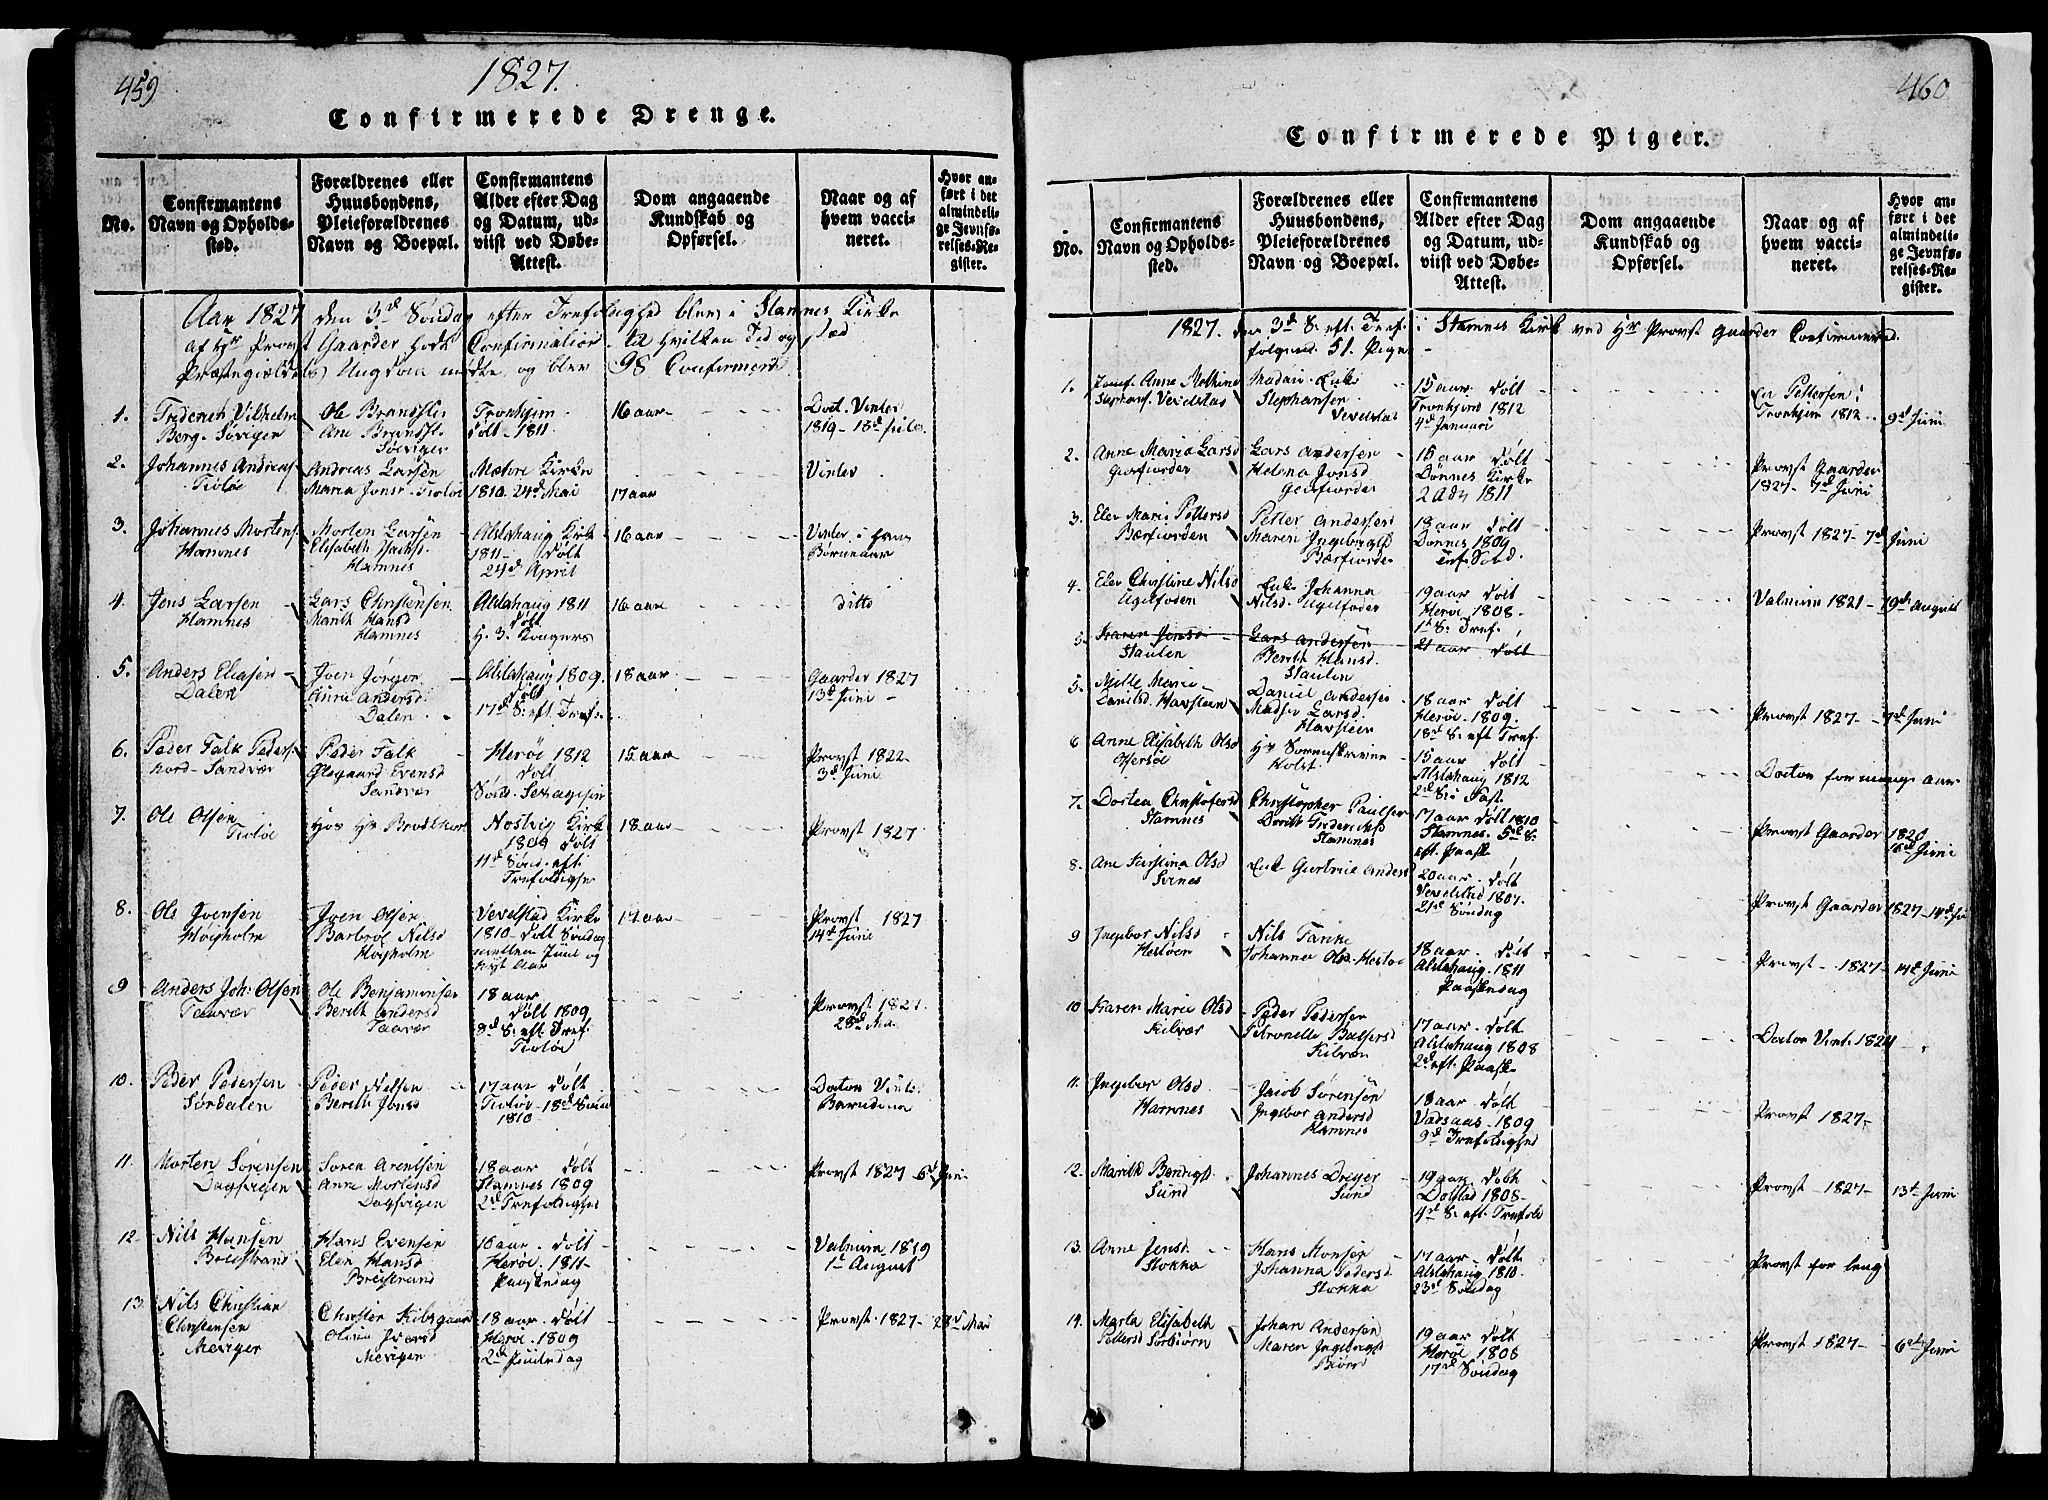 459
1827.
Confirmerede Drenge.
No.
Confirmantens
Navn og Opholds-
sted.
Forældrenes eller
Huusbondens,
Pleieforældrenes
Navn og Boepæl.
Confirmantens
Alder efter Dag
og Datum, ud-
viist ved Døbe-
Attest.
Dom angaaende
Kundskab og
Opførsel.
Naar og af
hvem vacci-
neret.
Hvor an-
ført i det
almindeli-
ge Jevnfø-
relses-Re-
gister.
Aar 1827 den 3d Söndag efter Trefoldighed blev i Stamnes Kirke
af Hr Provst Gaarder holdt Confirmation til hvilken Tid og Stæd
Præstegieldets Ungdom mødte, og blev 98 Confirmert
1.
Frideric Vilhelm
Berg. Søvigen
Ole Brandsli
Ane Brandsl.
Søviger
Tronhjem
Döbt 1811
16 aar
Doct. Vinter
1819
2.
Johannes Andreas
Tiøtøe
Andreas Larsen
Maria Jonsd. Tiøtøe
Kirke
1810. 24d Mai
17 aar
Vinter
3.
Johannes Mortens.
Hamnes
Morten Larsen
Elisabeth
Hamnes
Alstahaug Kirk
1811 Döbt
24d April
16 aar
Vinter i hans
Børneaar
4.
Jens Larsen
Hamnes
Lars Christensen
Marith Hansd
Hamnes
Alstahaug 1811
Döbt
16 aar
ditto
5.
Anders Eliasen
Dalen
Joen Jörgen
Anne Andersd
Dalen
Alstahaug 1809.
Döbt
17d S. eft. Tref.
18 aar
Gaarder 1827
13d Juni
6.
Peder Falk Peders
Nord-Sandvær
Peder Falk
Evensd
Sandvær
Herøe 1812
Döbt
15 aar
Provst 1822
3d Juni
7.
Ole Olsen
Tiøtøe
Hos Hr Brodtkorb
Kirke
1809 Döbt
11d Sönd. eft.
Trefoldighed
18 aar
Provst 1827
8.
Ole Joensen
Høiholm
Joen Olsen
Barbroe Nilsd
Høiholm
Vevelstad Kirke
1810 Döbt Söndag
mellem Juul og
Nyt Aar
17 aar
Provst 1827
14d Juni
9
Anders Joh. Olsen
Taavær
Ole Benjaminsen
Berith Andersd
Taavær
18 aar
Döbt 1809
3d S. eft. Tref.
Tiøtøe
Provst 1827.
28d Mai
10.
Peder Pedersen
Sørdalen
Peder Nilsen
Berith Jonsd
17 aar Döbt
Tiøtøe 18d Sönd
1810
Doctor Vinter
11.
Morten Sörensen
Dagsvigen
Sören Arentsen
Anne Mortensd
Dagsvigen
18 aar Döbt
Stamnes 1809
2d Trefoldighed
Provst 1827 6d Juni
12.
Nils Hansen
Breistrand
Hans Evensen
Elen Hansd
Breistrand
16 aar. Döbt
Herøe. 1811
Paaskedag
Valnum 1819
1st August
13.
Nils Christian
Christensen
Mevigen
Christen
Iversd
Mevigen
18 aar. Döbt
Herøe. 1809
2d Juuledag
Provst 1827 28d Mai
460
Confirmerede Piger.
No.
Confirmantens
Navn og Opholds-
sted.
Forældrenes eller
Huusbondens,
Pleieforældrenes
Navn og Boepæl.
Confirmantens
Alder efter Dag
og Datum, ud-
viist ved Døbe-
Attest.
Dom angaaende
Kundskab og
Opførsel.
Naar og af
hvem vacci-
neret.
Hvor an-
ført i det
almindeli-
ge Jevnfø-
relses-Re-
gister.
1827. den 3d S. eft. Tref. i Stamnes Kirk ved Hr Provst Gaarder Confirmered.
følgend. 51. Piger
1.
Jomf. Anne
Stephans. Vevelstad
Madam Enke
Stephansen
Vevelstad
15 aar Döbt
Tronhjem 1812
4d Januari
Petersen i
Tronhjem 1812 9d Juni
2.
Anne Maria Larsd
Lars Andersen
Helena Jonsd
16 aar Döbt
Dønnes Kirke
1811
Provst Gaarder
1827 7d Juni
3.
Elev Marie Pettersd
Bærfiorden
Petter Andersen
Maren Ingebrigtsd
Bærfiorden
18 aar Döbt
Dønnes 1809
Provst 1827 7d Juni
4.
Elev Christine Nilsd
Ugelfoden
Enke Johanna
Nilsd. Ugelfoden
19 aar Döbt
Herøe 1808.
1st S. Tref.
Valnum 1821 19de August
5.
Karen Jonsd
Staulen
Lars Andersen
Berith Hansd.
Staulen
21 aar Döbt
5.
Mille Marie
Danilsd. Havsteen
Daniel Andersen
Larsd.
Havsteen
18 aar Döbt
Herøe. 1809.
18d S. eft Tref
Provst 1827 7d Juni
6
Anne Elisabeth Olsd
Offersøe
Hr Sorenskriver
Holst.
15 aar Döbt
Alstahaug 1812
2d S. i Fast.
Doctor for mange aar
7.
Dortea Christofersd
Stamnes
Christopher Paulsen
Dorith Fredericksd
Stamnes
17 aar Döbt 1810
Stamnes. 5d S.
eft. Paaske
Provst Gaarder 1820
16d Juni
8.
Ane Olsd
Svines
Enk. Giertrue Andersd
20 aar. Döbt
Vevelstad 1807.
21d Söndag
Provst Gaarder 1827 14d Ju
9
Ingebor Nilsd
Hestøen
Nils
Johanna Olsd. Hestøe
18 aar. Döbt
Alstahaug. 1811
Paaskedag
Provst 1827 14d Juni
10
Karen Marie Olsd
Kilvær
Peder Pedersen
Petronelle Baltzersd
Kilvær
17 aar Döbt
Alstahaug 1808
2d eft. Paaske
Doctor Vint. 1824
11.
Ingebor Olsd
Hamnes
Jacob Sörensen
Ingebor Andersd
Hamnes
18 aar Döbt
Vadsaas 1809
9d Trefoldighed
Provst 1827
12.
Marith
Sund
Johannes Dreyer
Sund
19 aar Döbt
Dolstad 1808
4d S. eft. Trefold
Provst 1827 13de Juni
13.
Anne Jensd.
Stokka
Hans Monsen
Johanna Pedersd
Stokka
17 aar Döbt
Alstahaug 1810.
23d Söndag
Provst for leng
14.
Marta Elisabeth
Pettersd Sörbiörn
Johan Andersen
Maren Ingebrigtsd
Biörn
19 aar Döbt
Herøe 1808
17d Söndag
Provst 1827 6te Juni